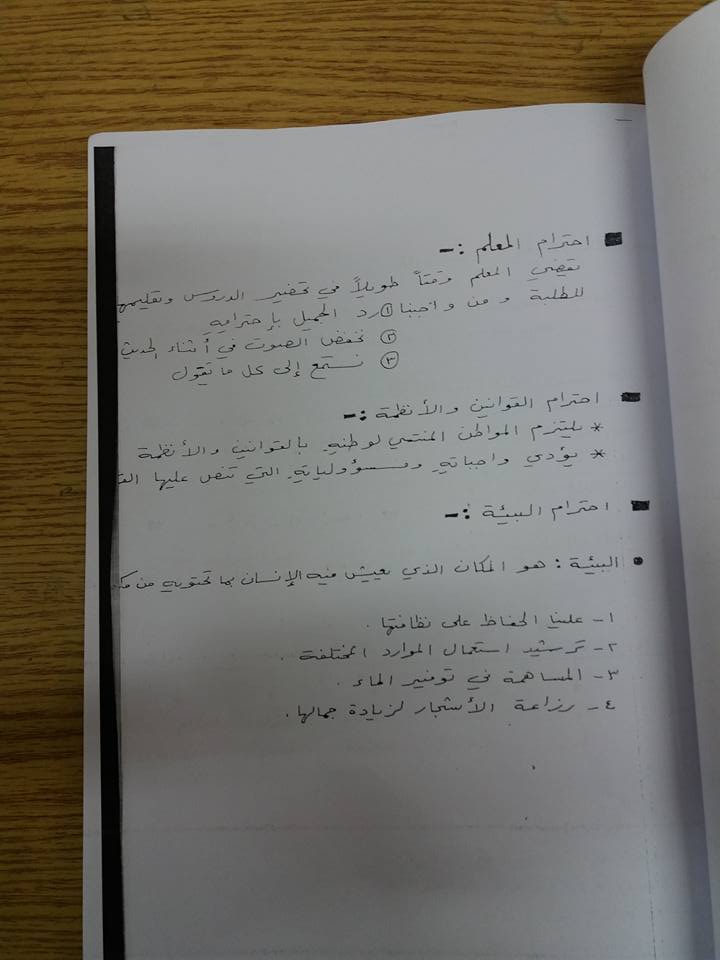 احترام المعلم :-
يقضي المعلم وقتاً طويلاً في تحضير الدروس وتقليمها
للطلبة ومن واجبنا ① رد الجميل بإحترامهِ
② نخفض الصوت في أثناء الحديث
③ نستمع إلى كل ما تقول
احترام القوانين والأنظمة :-
* يلتزم المواطن المنتمي لوطنهِ بالقوانين والأنظمة
* يؤدي واجباتهِ ومسؤولياتهِ التي تنص عليها
احترام البيئة :-
• البيئة : هو المكان الذي يعيش فيه الإنسان بما تحتويه من
١- علينا الحفاظ على نظافتها .
٢- ترشيد استعمال الموارد المختلفة .
٣- المساهمة في توفير الماء .
٤- زراعة الأشجار لزيادة جمالها .